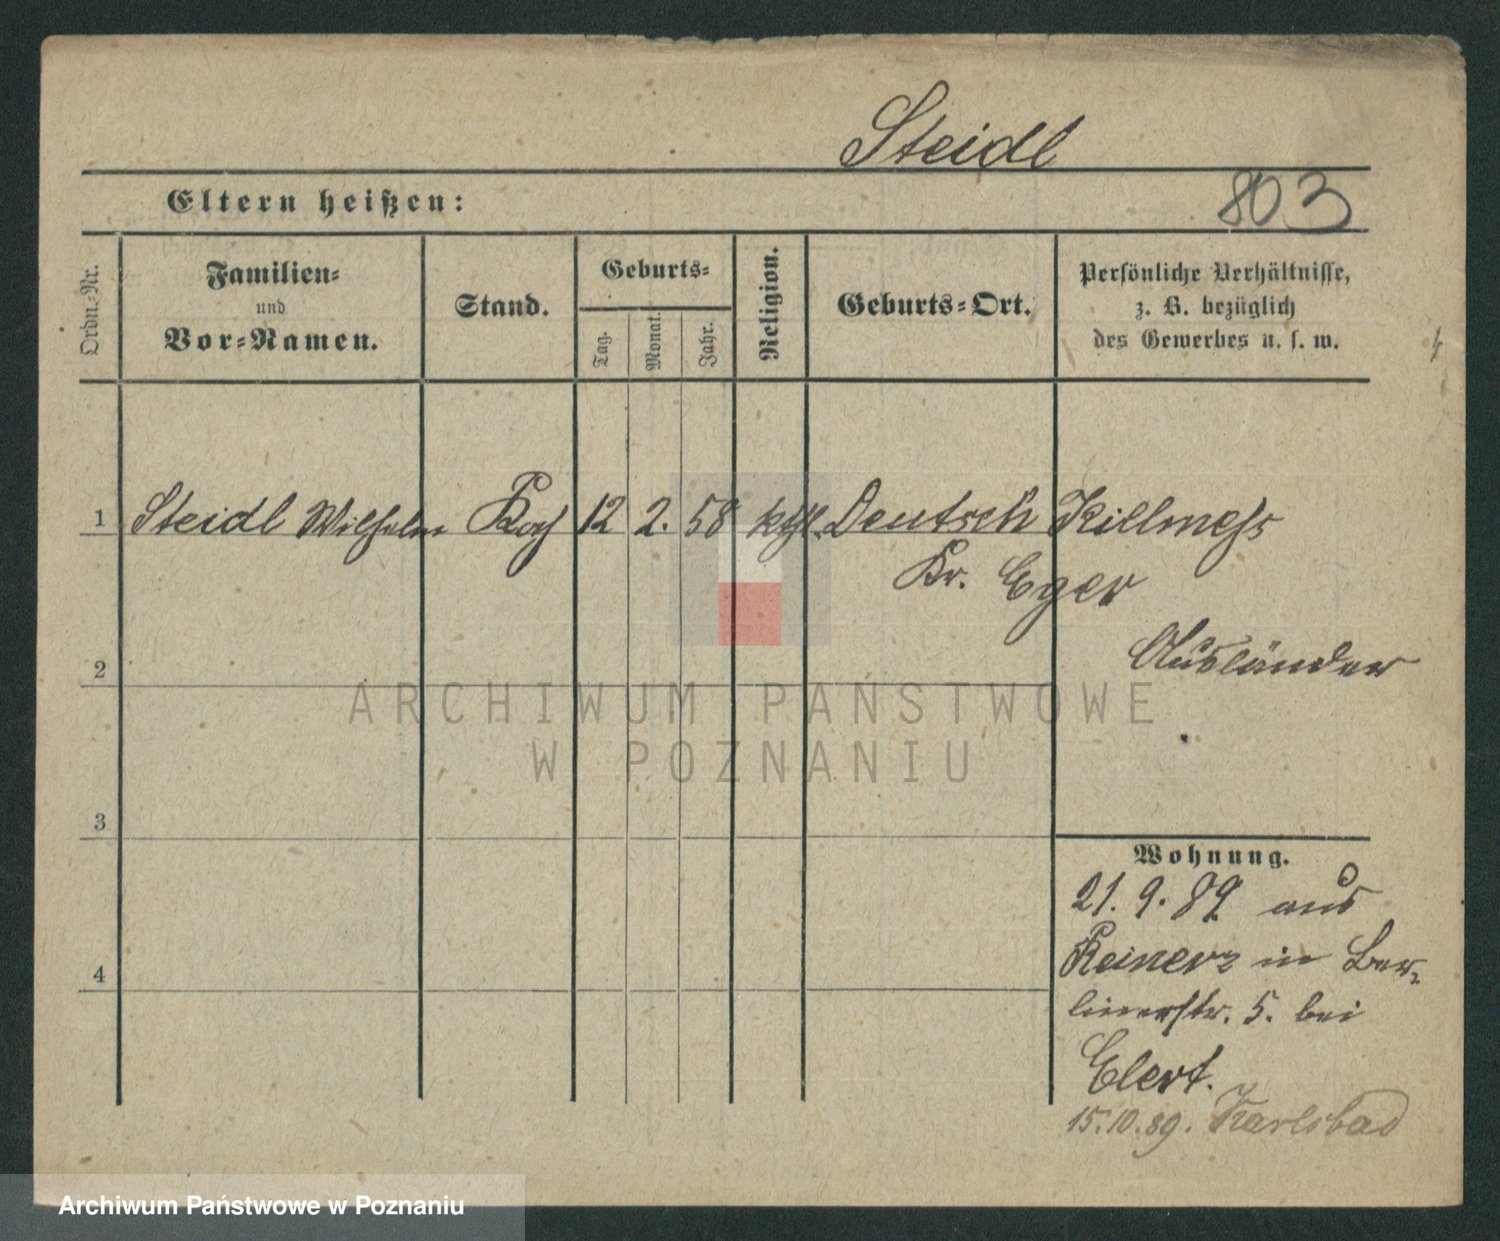 Steidl
803
Eltern heißen:
Ordn.-Nr.
Familien-
und
Vor-Namen.
Stand.
Geburts-
Tag.
Monat.
Jahr.
Religion.
Geburts-Ort.
Persönliche Verhältnisse,
z. B. bezüglich
des Gewerbes u. s. w.
1 Steidl Wilhelm Koch 12 2. 58 kthl. Deutsch Killmeß
Kr. Eger
Ausländer
2
ARCHIWUM PAŃSTWOWE
W POZNANIU
3
Wohnung.
21. 9. 89 aus
Reinerz in Ber-
4
linerstr. 5. bei
Elert.
15.10.89. Karlsbad
Archiwum Państwowe w Poznaniu